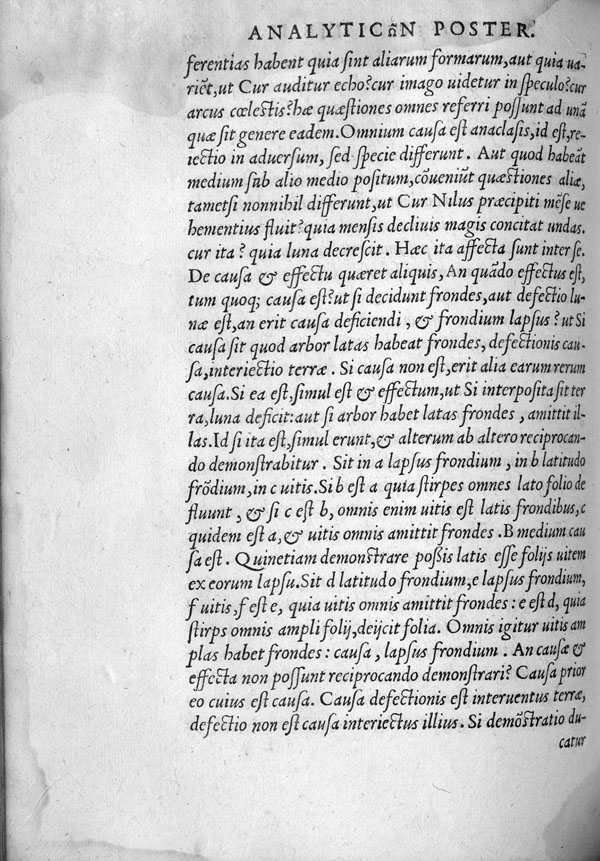 ANALYTICωñN POSTER.
ferentias habent quia sint aliarum formarum,aut quia ua-
riēt,ut Cur auditur echo?cur imago uidetur in speculo?cur
arcus cœlestis?hæ quæstiones omnes referri possunt ad unā
quæ sit genere eadem.Omnium causa est anaclasis,id est,re-
iectio in aduersum, sed specie differunt. Aut quod habeāt
medium sub alio medio positum,cōueniūt quæstiones aliæ,
tametsi nonnihil differunt,ut Cur Nilus præcipiti mēse ue
hementius fluit?quia mensis decliuis magis concitat undas.
cur ita? quia luna decrescit. Hæc ita affecta sunt inter se.
De causa & effectu quæret aliquis, An quādo effectus est,
tum quoq; causa est?ut si decidunt frondes,aut defectio lu-
næ est,an erit causa deficiendi, & frondium lapsus? ut Si
causa sit quod arbor latas habeat frondes, defectionis cau-
sa,interiectio terræ. Si causa non est,erit alia earum rerum
causa.Si ea est,simul est & effectum,ut Si interposita sit ter
ra,luna deficit:aut si arbor habet latas frondes, amittit il-
las.Id si ita est,simul erunt,& alterum ab altero reciprocan-
do demonstrabitur. Sit in a lapsus frondium, in b latitudo
frōdium,in c uitis.Si b est a quia stirpes omnes lato folio de
fluunt, & si c est b, omnis enim uitis est latis frondibus,c
quidem est a,& uitis omnis amittit frondes.B medium cau
sa est. Quinetiam demonstrare poßis latis esse folijs uitem
ex eorum lapsu.Sit d latitudo frondium,e lapsus frondium,
f uitis,f est e, quia uitis omnis amittit frondes: e est d, quia
stirps omnis ampli folij,deijcit folia. Omnis igitur uitis am
plas habet frondes: causa, lapsus frondium. An causæ &
effecta non possunt reciprocando demonstrari? Causa prior
eo cuius est causa. Causa defectionis est interuentus terræ,
defectio non est causa interiectus illius. Si demōstratio du-
catur